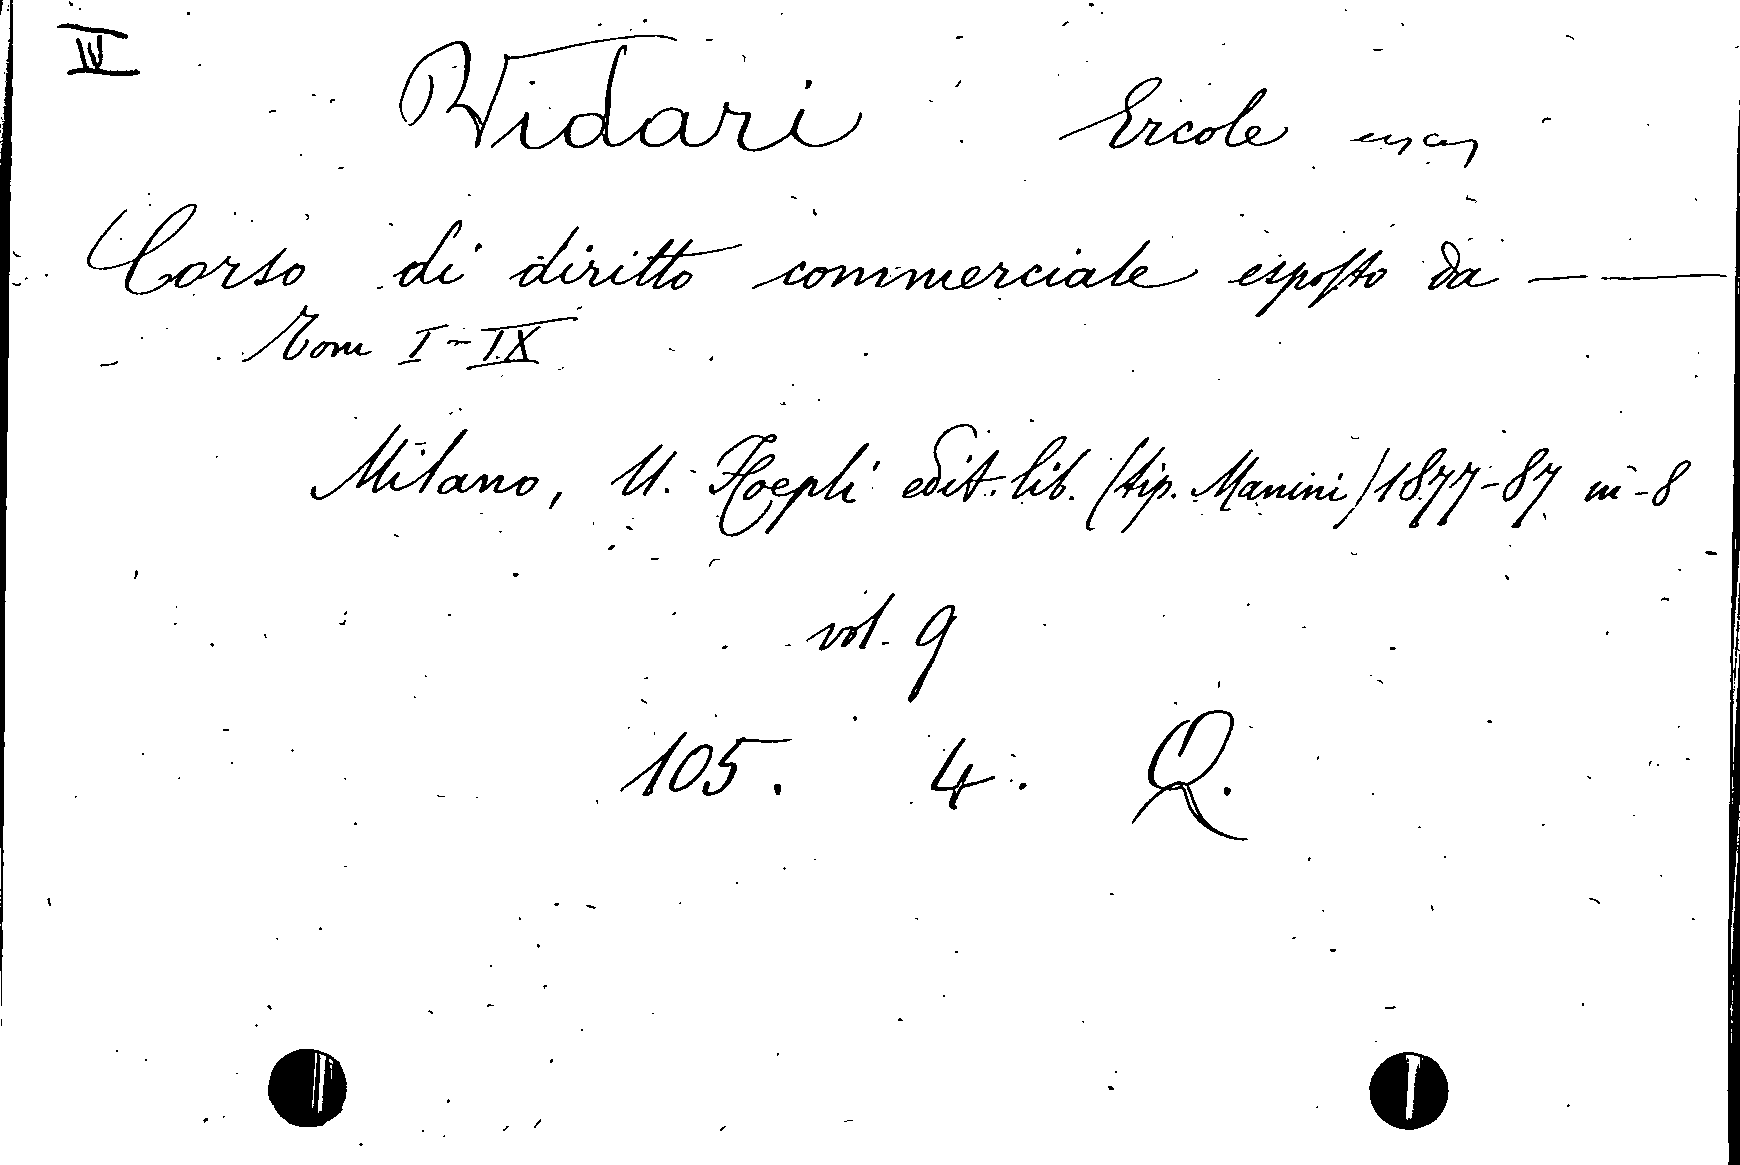 IV
Vidari Ercole
Corso di diritto commerciale esposto da — —
Tom I-IX
Milano, U. Hoepli edit. lib. (tip. Manini) 1877-87 in-8
vol. 9
105. 4. Q.